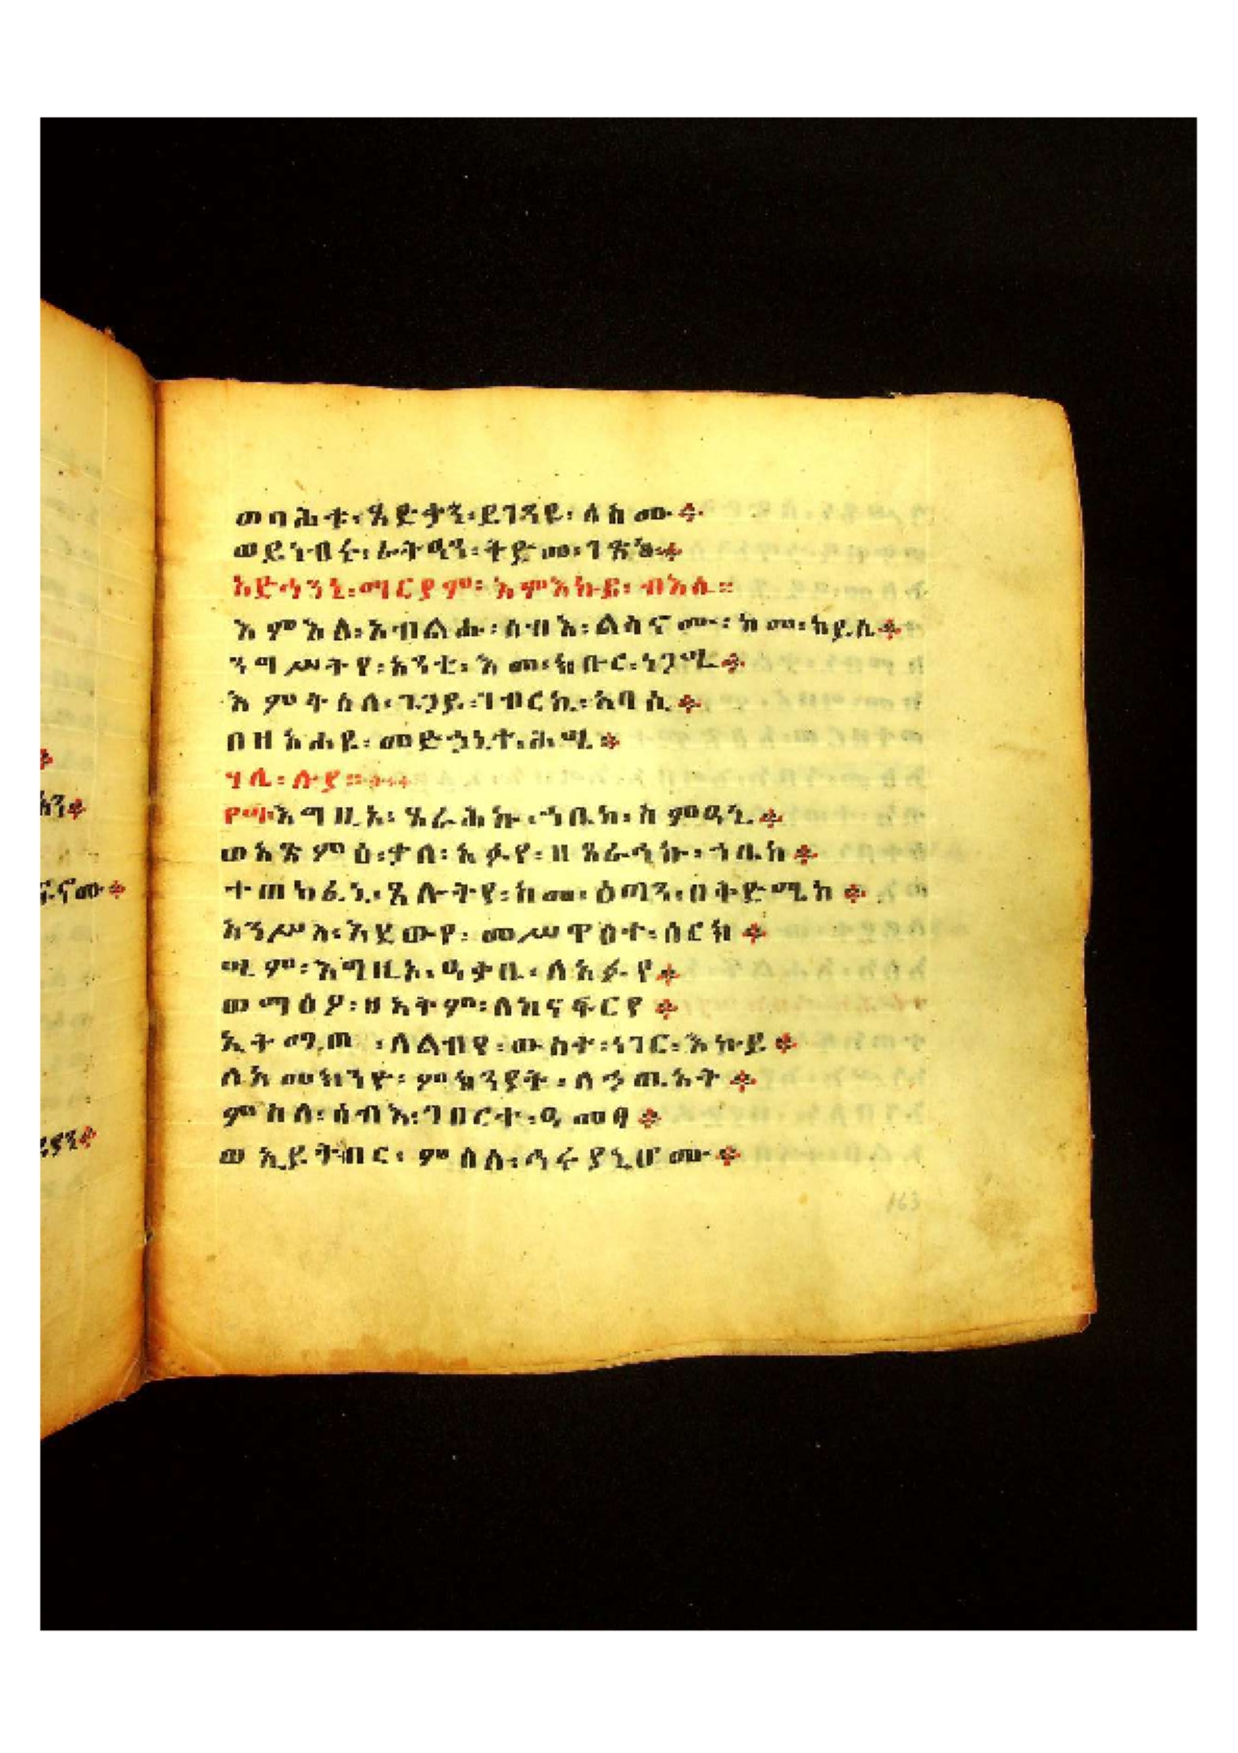 ወባሕቱ፡ጻድቃን፡ይገንዩ፡ለስሙ።
ወይነብሩ፡ራትዓን፡ቅድመ፡ገጽከ።
አድኅንኒ፡ማርያም፡እምእኩይ፡ብእሲ።
እምእለ፡አብልሑ፡ሰብእ፡ልሳኖሙ፡ከመ፡ከይሲ።
ንግሥትየ፡አንቲ፡እመ፡ክቡር፡ነጋሢ።
እምትስለ፡ጌጋይ፡ገብርኪ፡አባሲ።
በዘአሐዩ፡መድኃኒተ፡ሕሚ።
ሃሌ፡ሉያ።
፻፵እግዚኦ፡ጸራሕኩ፡ኀቤከ፡ስምዓኒ።
ወአጽምዕ፡ቃለ፡አፉየ፡ዘጸራኅኩ፡ኀቤከ።
ተወከፈኒ፡ጸሎትየ፡ከመ፡ዕጣን፡በቅድሜከ።
አንሥኦ፡እደውየ፡መሥዋዕተ፡ሰርክ።
ሢም፡እግዚኦ፡ዓቃቤ፡ለአፉየ።
ወማዕፆ፡ዘአቅም፡ለከናፍርየ።
ኢትሚጦ፡ለልብየ፡ውስተ፡ነገር፡እኩይ።
ለአመክንዮ፡ምክንያት፡ለኃጢአት።
ምስለ፡ሰብእ፡ገበርተ፡ዓመፃ።
ወኢይትኀበር፡ምስለ፡ኅሩያኒሆሙ።
163